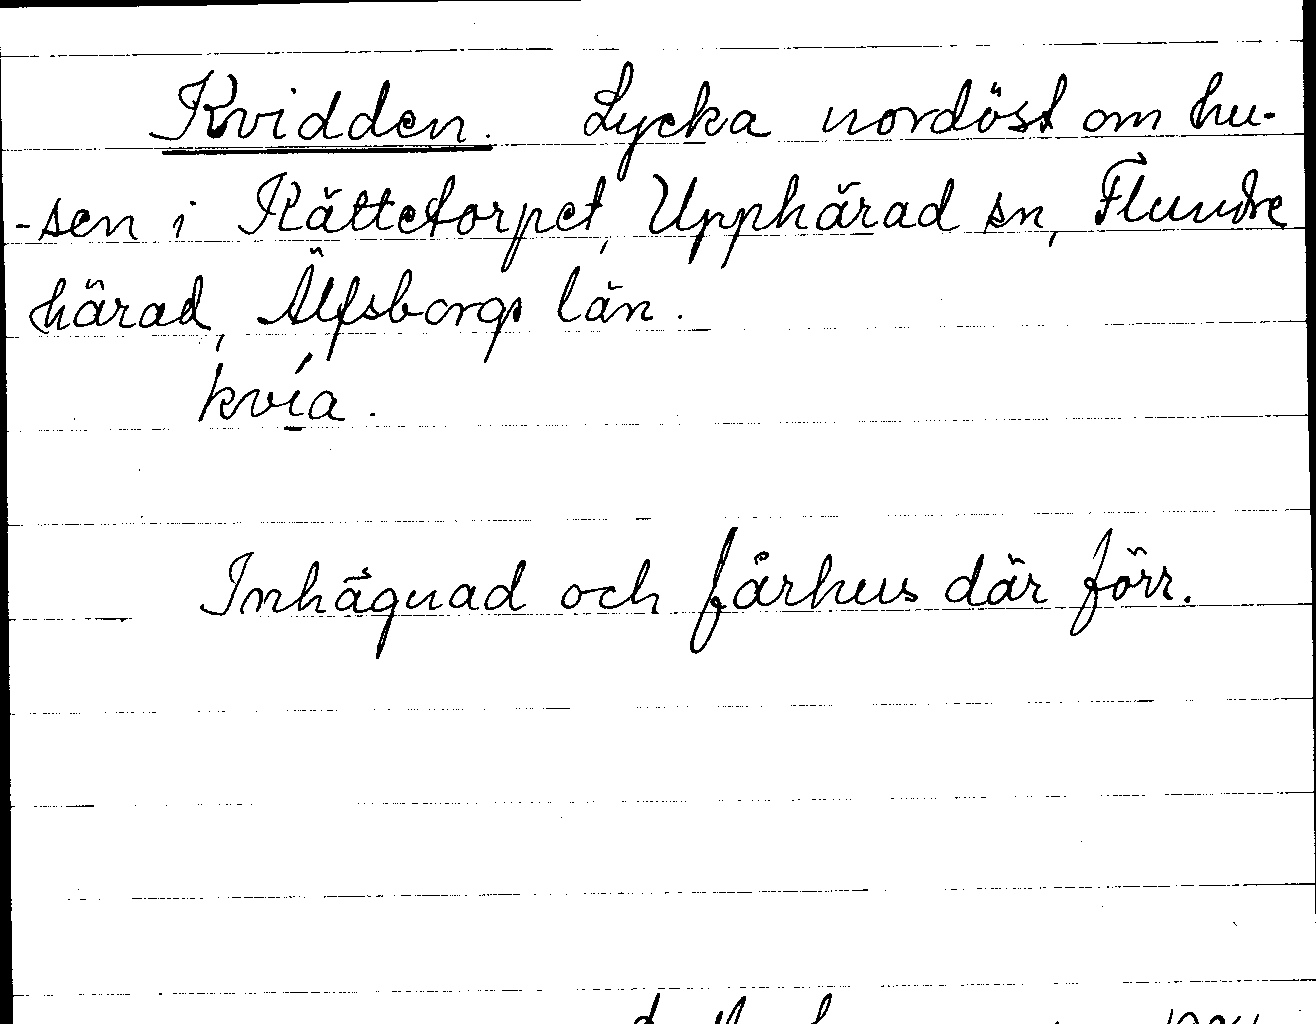 Kvidden. Lycka nordöst om hu-
-sen i Kättetorpet, Upphärad sn, Flundre
härad, Älfsborgs län.
kvía.
Inhägnad och fårhus där förr.